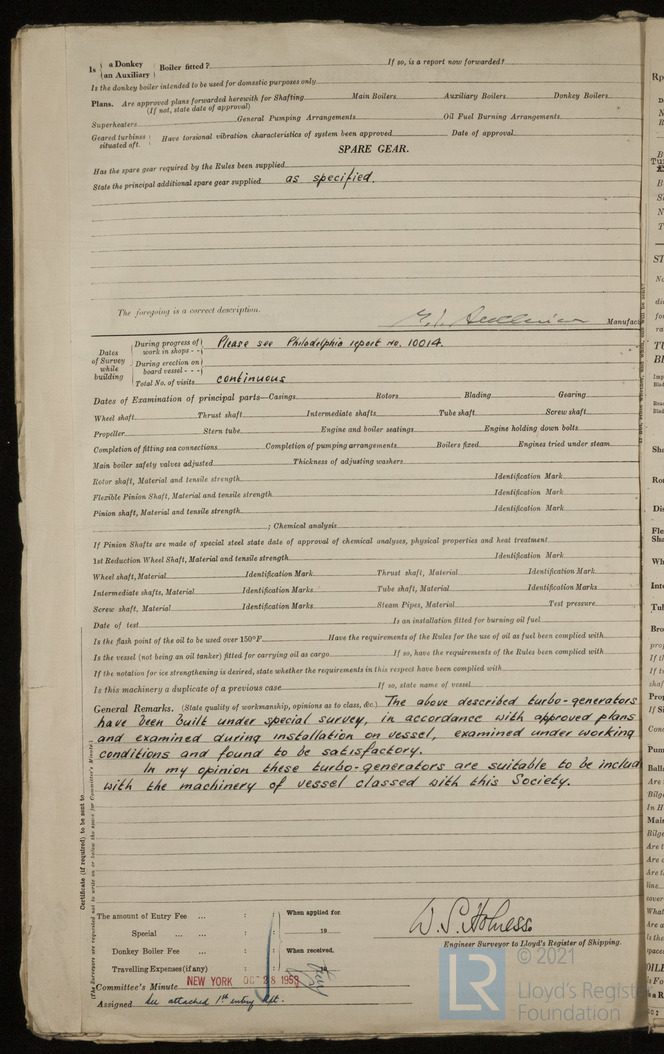 Is { a Donkey / an Auxiliary } Boiler fitted? If so, is a report now forwarded?
Is the donkey boiler intended to be used for domestic purposes only
Plans. Are approved plans forwarded herewith for Shafting Main Boilers Auxiliary Boilers Donkey Boilers
(If not, state date of approval)
Superheaters General Pumping Arrangements Oil Fuel Burning Arrangements
Geared turbines situated aft. Have torsional vibration characteristics of system been approved Date of approval
SPARE GEAR.
Has the spare gear required by the Rules been supplied
State the principal additional spare gear supplied as specified.
The foregoing is a correct description.
Manufac
Dates of Survey while building
During progress of work in shops - - Please see Philadelphia report no. 10014.
During erection on board vessel - - -
Total No. of visits continuous
Dates of Examination of principal parts—Casings Rotors Blading Gearing
Wheel shaft Thrust shaft Intermediate shafts Tube shaft Screw shaft
Propeller Stern tube Engine and boiler seatings Engine holding down bolts
Completion of fitting sea connections Completion of pumping arrangements Boilers fixed Engines tried under steam
Main boiler safety valves adjusted Thickness of adjusting washers
Rotor shaft, Material and tensile strength Identification Mark
Flexible Pinion Shaft, Material and tensile strength Identification Mark
Pinion shaft, Material and tensile strength Identification Mark
; Chemical analysis
If Pinion Shafts are made of special steel state date of approval of chemical analyses, physical properties and heat treatment
1st Reduction Wheel Shaft, Material and tensile strength Identification Mark
Wheel shaft, Material Identification Mark Thrust shaft, Material Identification Mark
Intermediate shafts, Material Identification Marks Tube shaft, Material Identification Marks
Screw shaft, Material Identification Marks Steam Pipes, Material Test pressure
Date of test Is an installation fitted for burning oil fuel
Is the flash point of the oil to be used over 150°F Have the requirements of the Rules for the use of oil as fuel been complied with
Is the vessel (not being an oil tanker) fitted for carrying oil as cargo If so, have the requirements of the Rules been complied with
If the notation for ice strengthening is desired, state whether the requirements in this respect have been complied with
Is this machinery a duplicate of a previous case If so, state name of vessel
General Remarks. (State quality of workmanship, opinions as to class, &c.) The above described turbo-generators
have been built under special survey, in accordance with approved plans
and examined during installation on vessel, examined under working
conditions and found to be satisfactory.
In my opinion these turbo-generators are suitable to be includ
with the machinery of vessel classed with this Society.
Certificate (if required), to be sent to
(The Surveyors are requested not to write on or below the space for Committee's Minute.)
The amount of Entry Fee ... : : When applied for
Special ... : : 19
Donkey Boiler Fee ... : : When received.
Travelling Expenses (if any) : :
W. S. Holness
Engineer Surveyor to Lloyd's Register of Shipping.
Committee's Minute NEW YORK OCT 28 1953
Assigned See attached 1st entry Rpt.
© 2021
LR
Lloyd's Register
Foundation